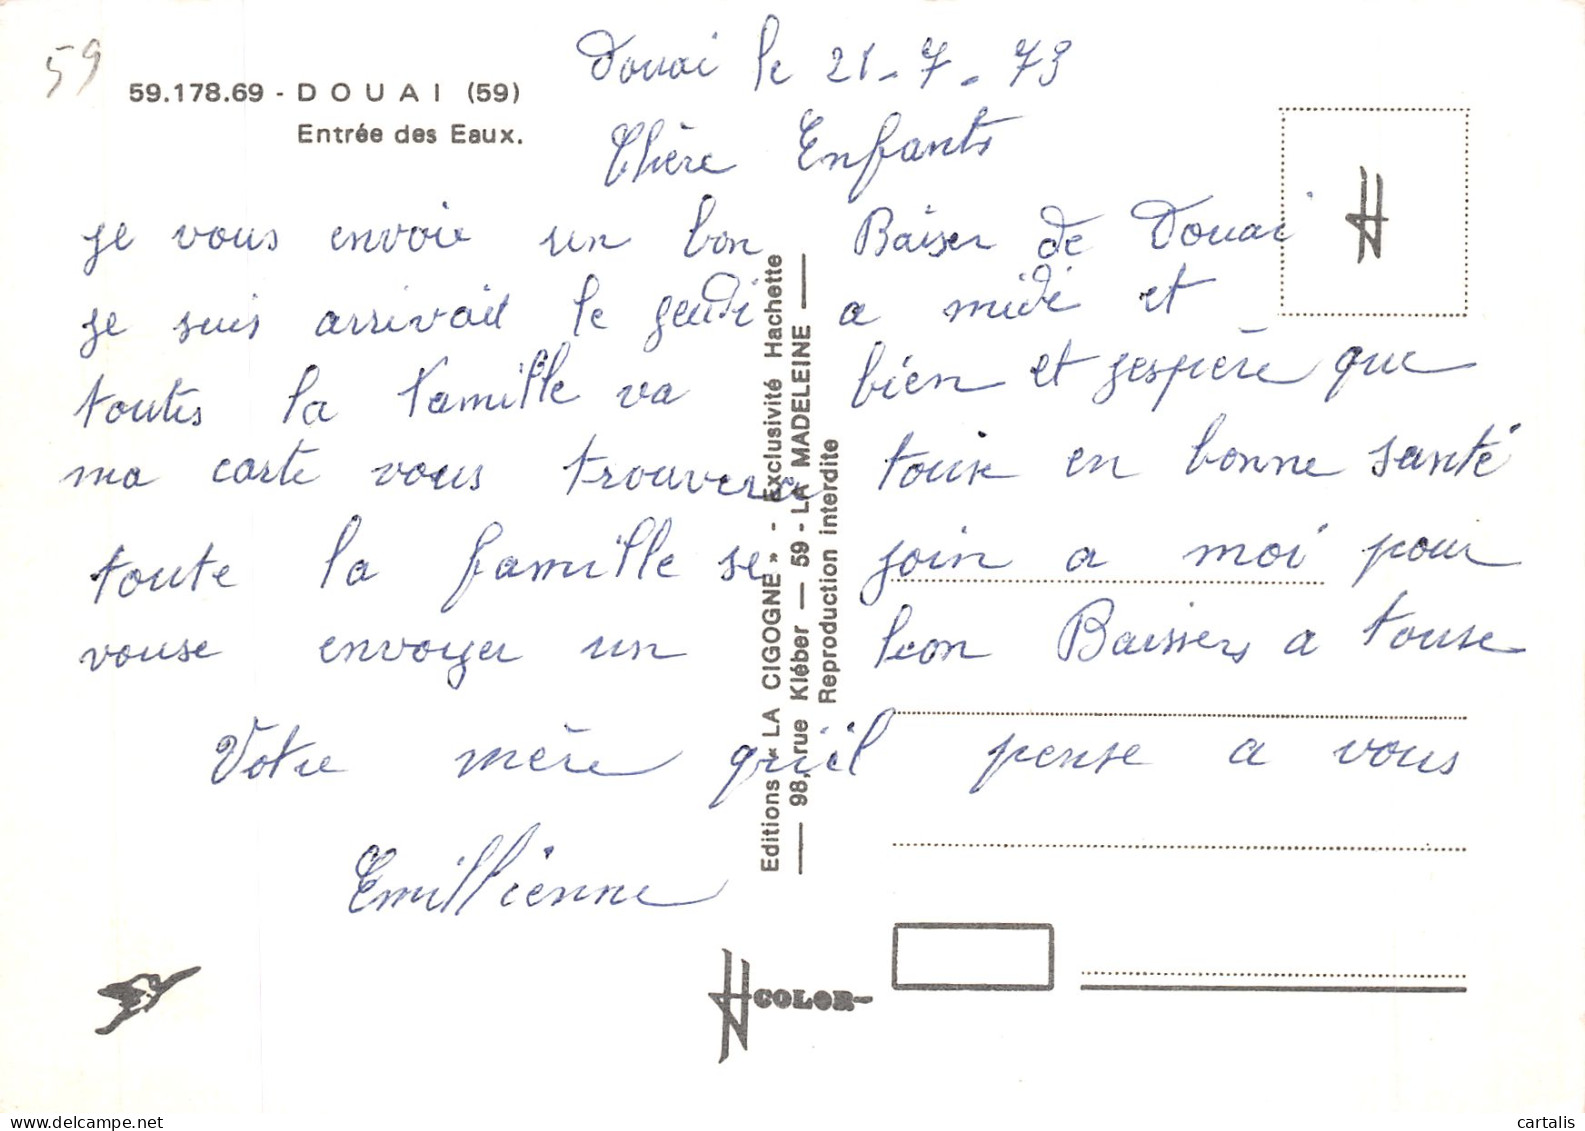 59
59.178.69 - DOUAI (59)
Entrée des Eaux.
Douai le 21-7-73
Chère Enfants
je vous envoie un bon Baiser de Douai
je suis arrivait le jeudi a midi et
toutes la famille va bien et jespère que
ma carte vous trouvera touse en bonne santé
toute la famille se join a moi pour
vouse envoyer un bon Baissers a touse
Votre mère qui il pense a vous
Emillienne
Editions « LA CIGOGNE » - Exclusivité Hachette
— 98, rue Kléber — 59 - LA MADELEINE —
Reproduction interdite
COLOR
cartalis